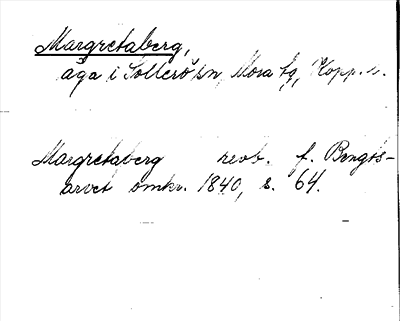 Margretaberg,
äga i Sollerö sn, Mora tg, Kopp. l.
Margretaberg neob. f. Bengts-
arvet omkr. 1840, s. 64.